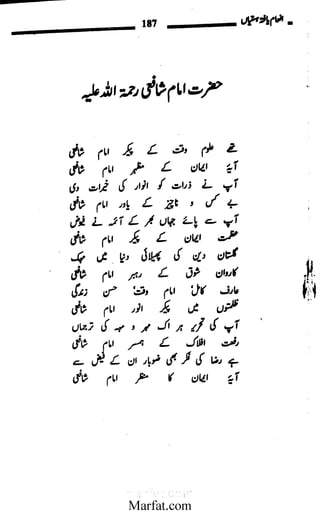 187
انعام یافتہ ہستیاں
حضرت امام شافعی رحمۃ اللہ علیہ
تھے علوم وقت کے پیکر امام شافعی
آیۂ ایمان کے مظہر امام شافعی
آپ نے ذرات کو انوار کی خیرات دی
بے کس و ناچیز کے یاور امام شافعی
آپ سے پائے جہاں بھر کے آئمہ نے فیض
عظمت ایمان کے پیکر امام شافعی
گلستان دین کی پھیلائی دنیا میں مہک
کاروان شوق کے رہبر امام شافعی
عارف کامل امام وقت حسن زندگی
ظلمتوں میں پیکر انور امام شافعی
آپ کی تحریر ہر اک مہر و مہ کی ترجماں
رفعت افلاک کے ہمسر امام شافعی
ہے رضا کی فکر بھی ضوبار ان کے فیض سے
آیۂ ایمان کا منظر امام شافعی
Marfat.com